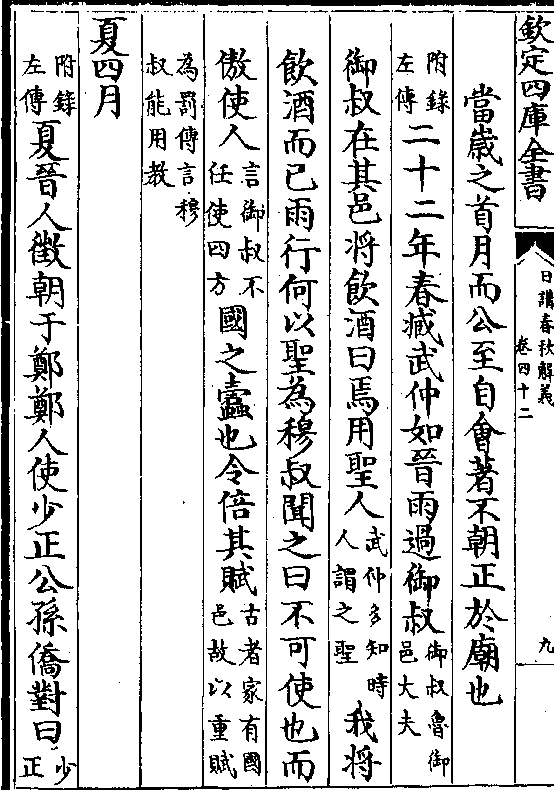 欽定四庫全書
日講春秋解義
卷四十二
九
當歲之首月而公至自會著不朝正於廟也
附錄左傳二十二年春臧武仲如晉雨過御叔御叔魯御邑大夫
御叔在其邑將飲酒曰焉用聖人武仲多知時人謂之聖我將
飲酒而已雨行何以聖為穆叔聞之曰不可使也而
傲使人言御叔不任使四方國之蠹也令倍其賦古者家有國邑故以重賦
為罰傳言穆叔能用教
夏四月
附錄左傳夏晉人徵朝于鄭鄭人使少正公孫僑對曰少正